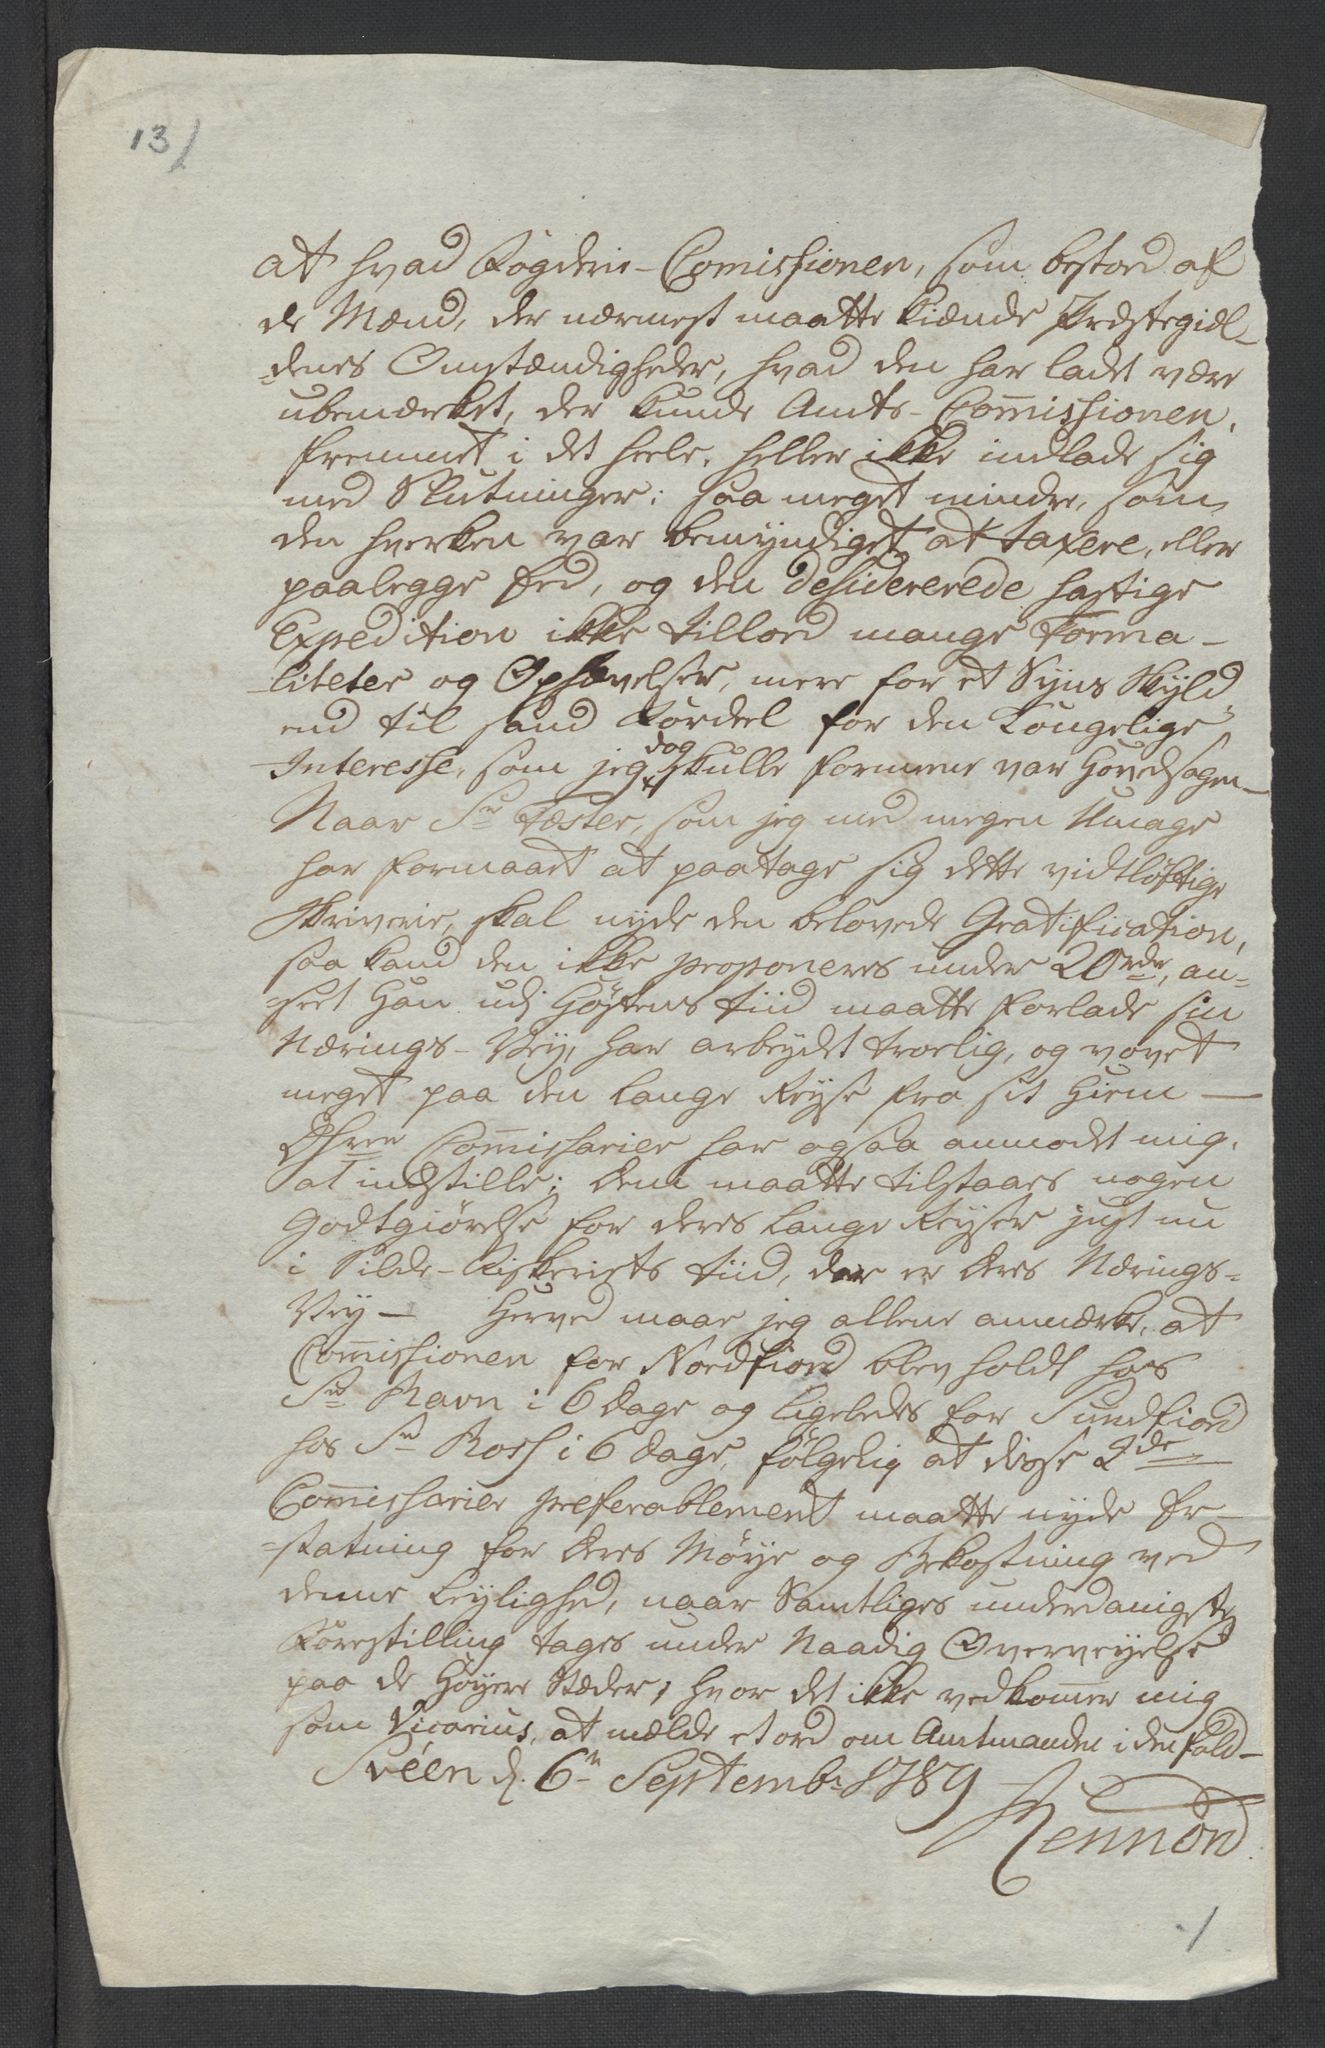 13/
at hvad Fogderi-Comissionen, som bestod af
de Mænd, der nærmest maatte kiænde Præstegiæl-
-denes Omstændigheder, hvad den har ladet være
ubemærket, der kunde Amts-Com̄issionen,
fremmet i det heele, heller ikke indlade sig
med Slutninger: saa meget mindre, som
den hverken var bemyndiget at taxere, eller
paalegge Eed, og den desidererede hastige
Expedition ikke tillod mange Forma-
-liteter og Ophævelser, mere for et Syns Skyld,
end til sand Fordeel for den Kongelige
Interesse, som jeg dog skulle formeene var Hovedsagen-
Naar Sr Fæster, som jeg med megen Umage
har formaaet at paatage sig dette vidtløftige
Skriverie, skal nyde den belovede Gratification,
saa kand den ikke proponeres under 20 rdr, an-
-seet Han udj Høstens tiid maatte forlade sin
Nærings-Vey, har arbeydet troelig, og vovet
meget paa den lange Reyse fra sit Hiem —
Dhrrn Com̄issarier har ogsaa anmodet mig,
at indstille; dem maatte tilstaaes nogen
Godtgiørelse for deres lange Reyser just nu
i Silde-Fiskeriets tiid, der er deres Nærings-
Vey — Herved maae jeg allene anmærke, at
Com̄issionen for Nordfiord blev holdt hos
Sr Ravn i 6 dage og ligeledes for Sundfiord
hos Sr Rosf i 6 dage, følgelig at disse 2de
Com̄issarier preferablement maatte nyde Er-
-statning for deres Møye og Bekostning ved
denne Leylighed, naar Samtliges underdanigste
Forestilling tages under Naadig Overveyelse
paa de Høyere Stæder, hvor det ikke vedkom̄er mig
som Vicarius, at mælde et ord om Amtmanden i den fald-
Svéen d. 6n Septembr 1789
Hennød
/